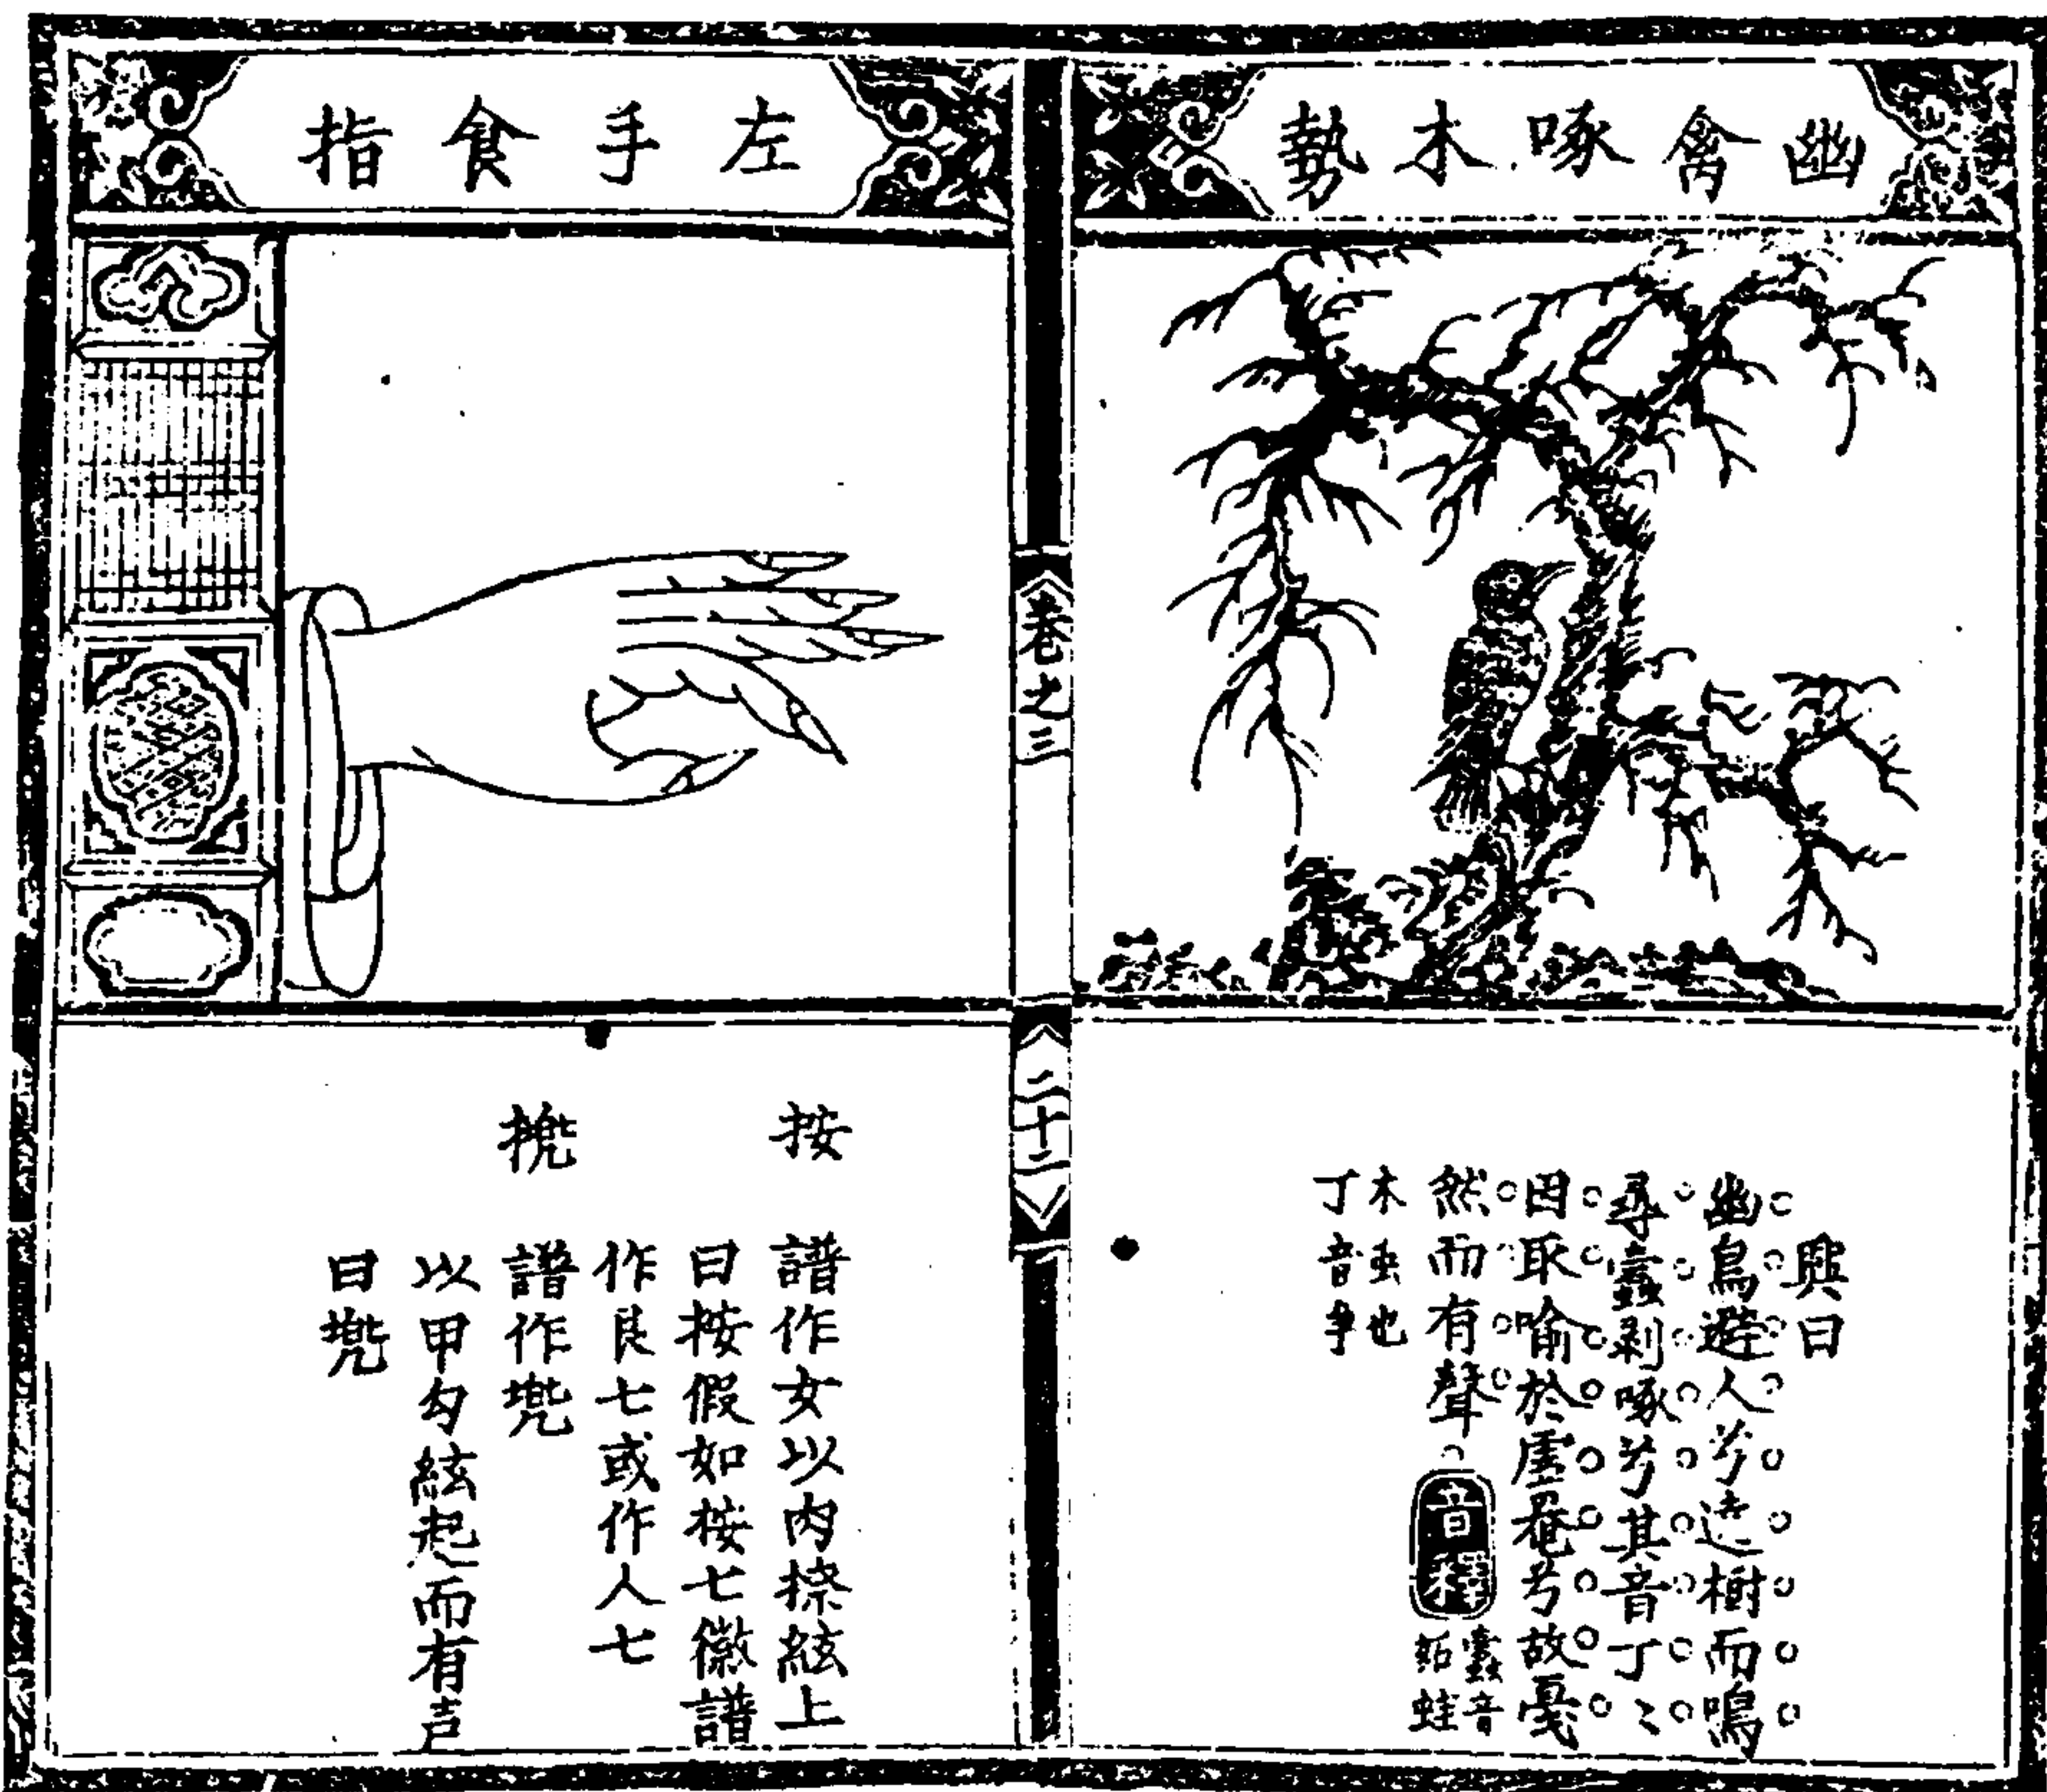 幽禽啄木勢
興曰
幽鳥避人兮遶樹而鳴
尋蠹剥啄兮其音丁〻
因取喻於虛罨兮故戞
然而有聲 音釋 蠹音
妬蛀
木虫也
丁音爭
卷之三
二十二
左手食指
按 譜作女以内捺絃上
曰按假如按七徽譜
作艮七或作人七
譜作
以甲勾絃起而有声
曰